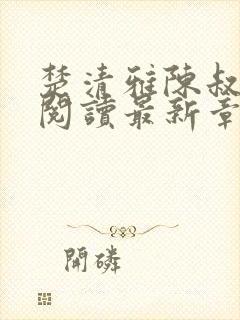 楚清雅陳叔
閱讀最新章
開磷